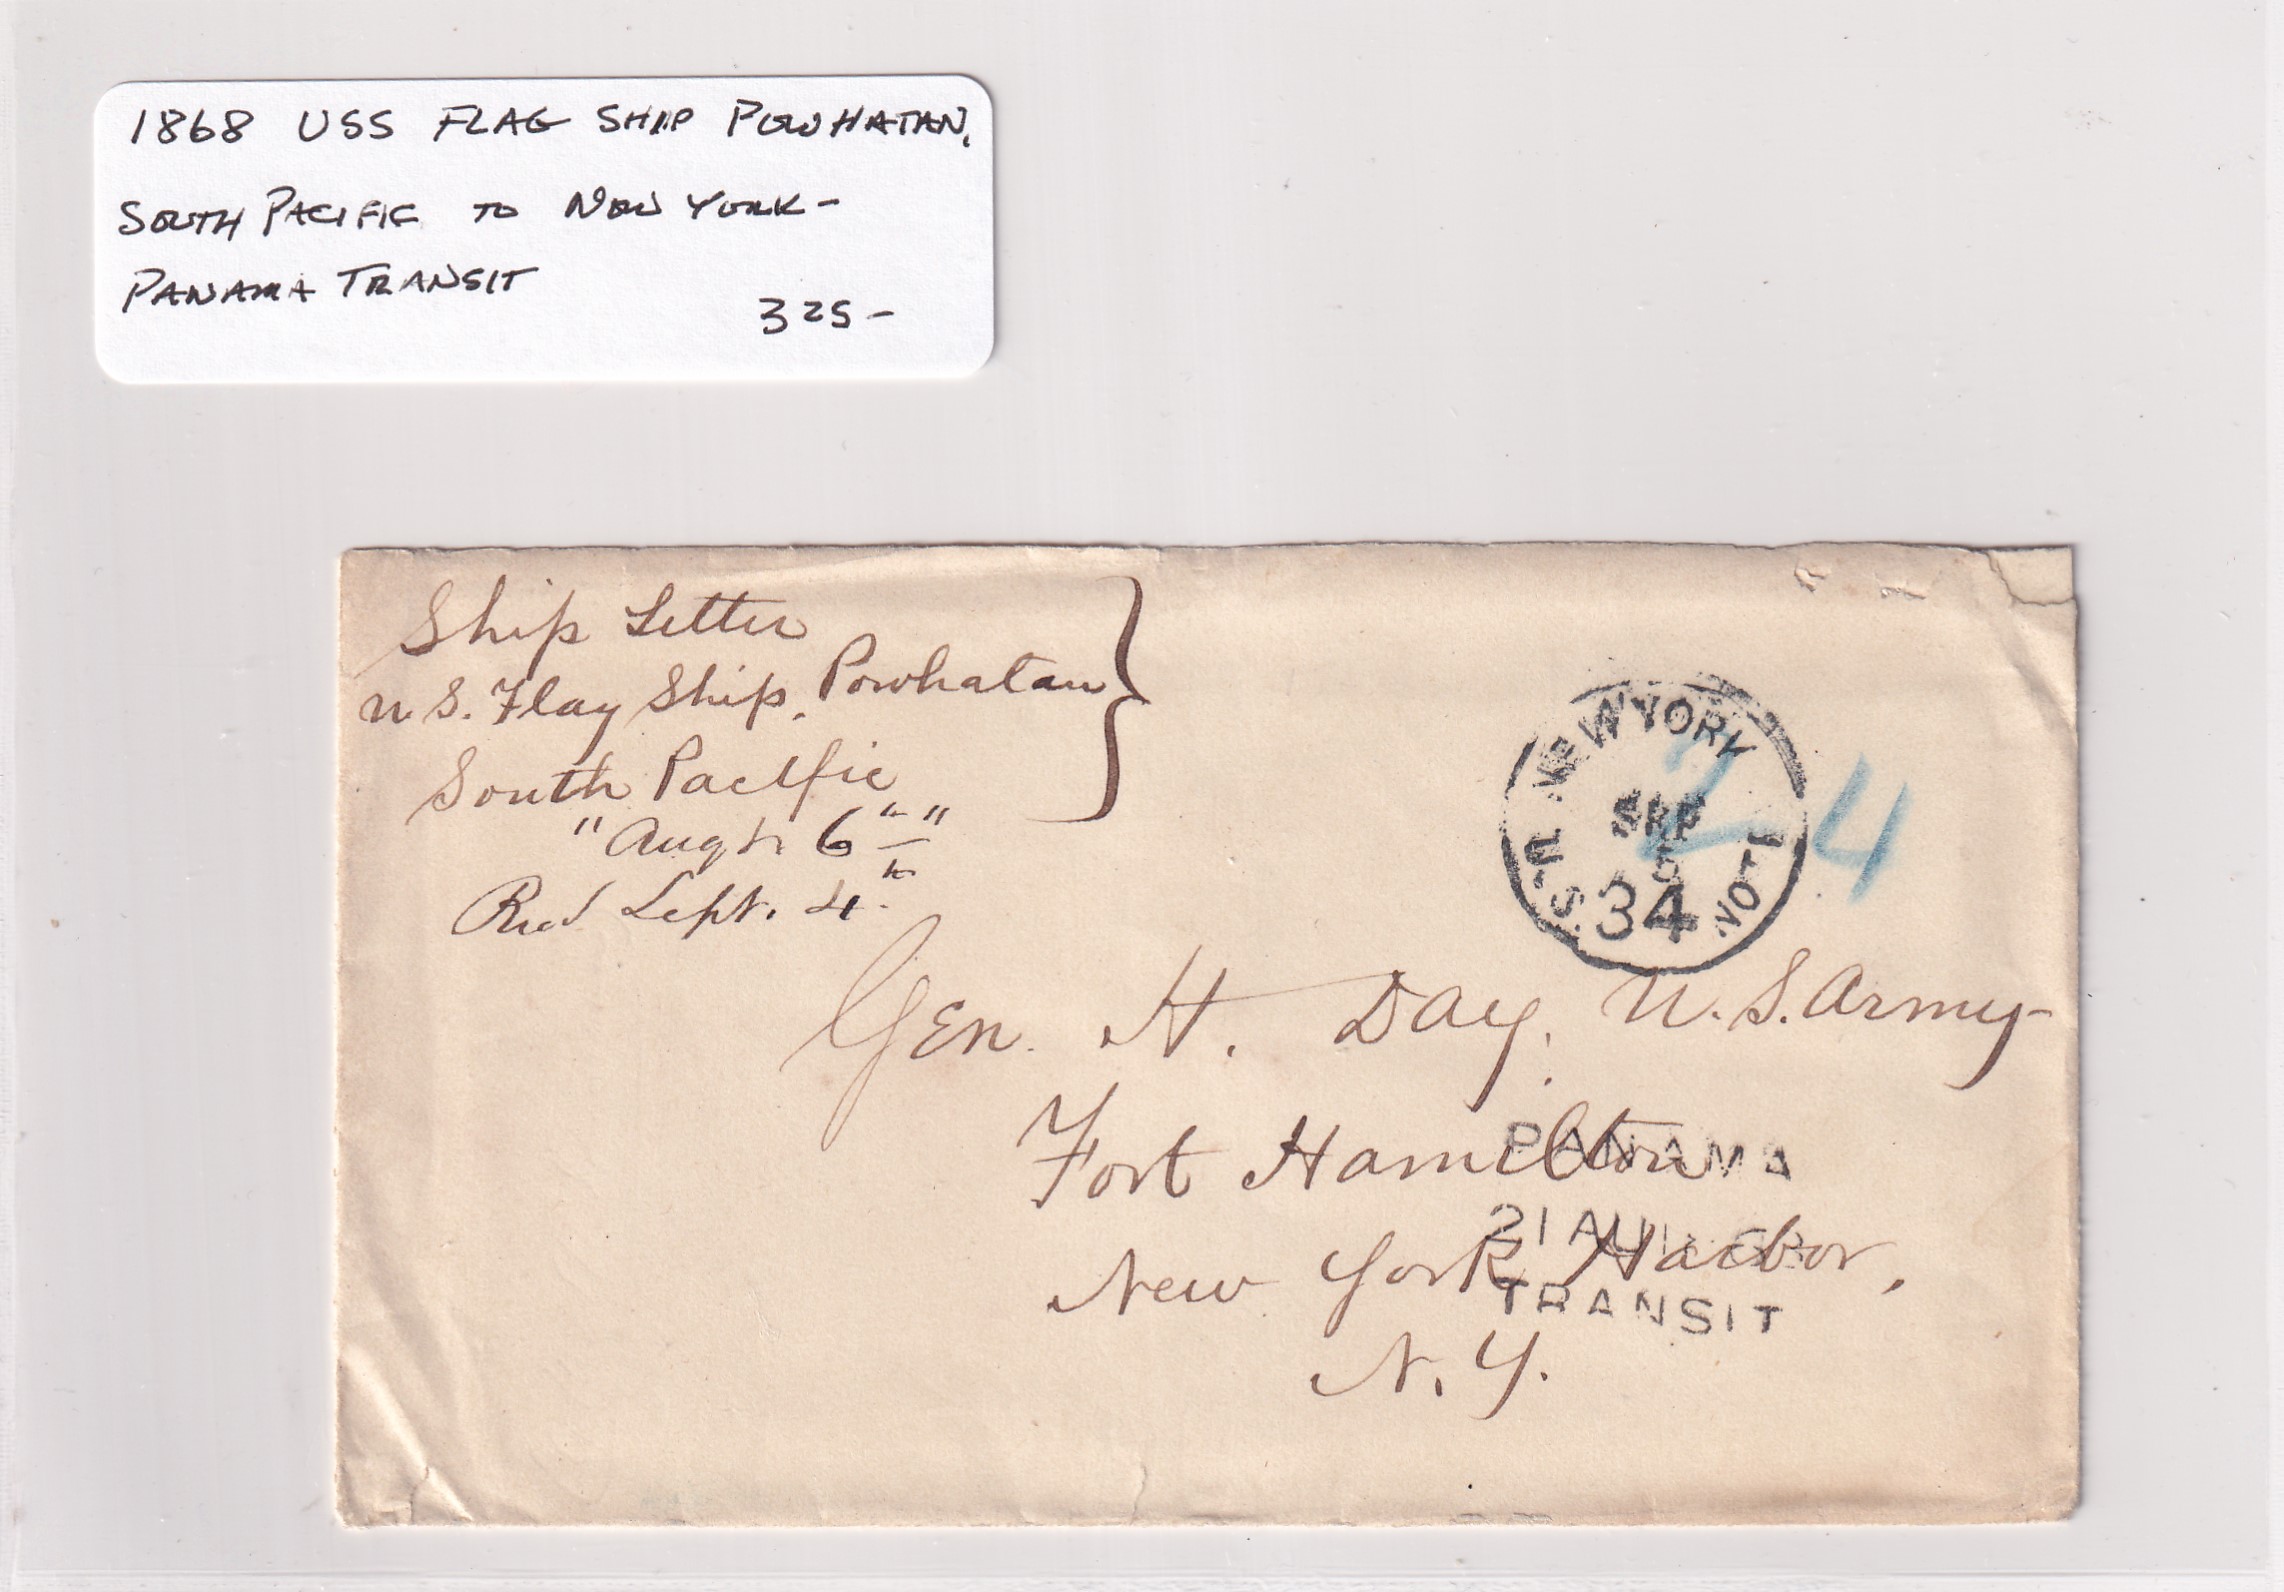 1868 USS FLAG SHIP POWHATAN,
SOUTH PACIFIC TO NEW YORK-
PANAMA TRANSIT
325-
Ship Letter
U.S. Flag Ship. Powhatan
South Pacific
"Augt. 6th"
Recd Sept. 4th
NEW YORK
U.S. NOTES
SEP
5
34
24
Gen. H. Day, U.S. Army
Fort Hamilton
New York Harbor,
N.Y.
PANAMA
21 AU 68
TRANSIT